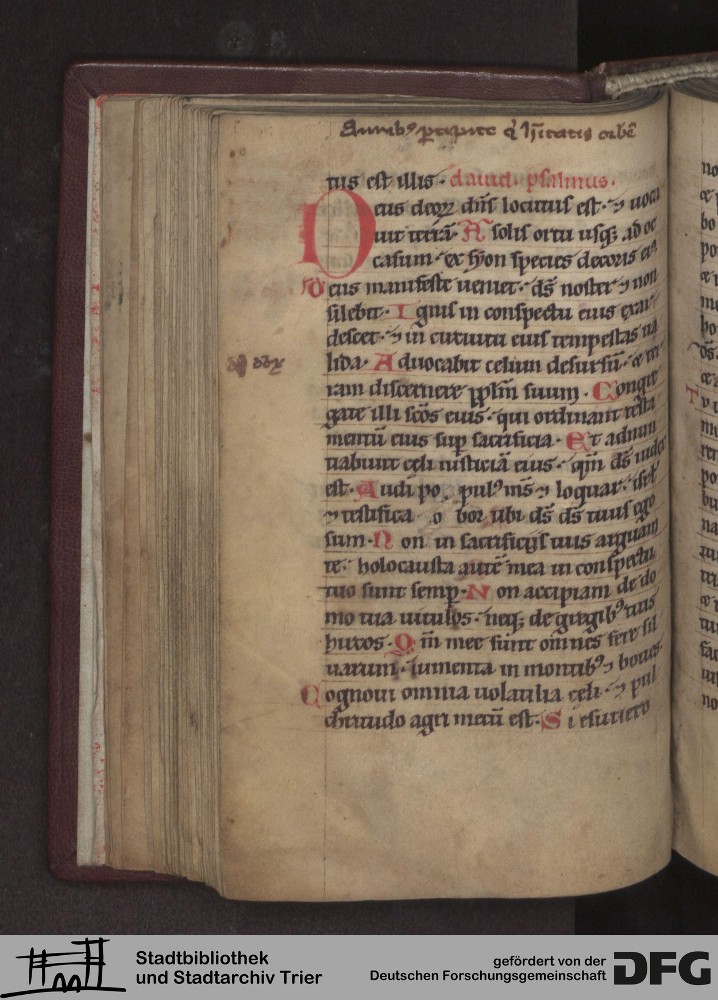 Aurib⁹ ꝑcipite q̄ hītatis orbē
tus est illis. dauid. psalmus.
Deus deoꝝ dn̄s locutus est. ⁊ uoca
uit terrā. A solis ortu usqꝫ ad oc
casum. ex syon species decoris ei⁹
Deus manifeste ueniet. ds̄ noster ⁊ non
silebit. Ignis in conspectu eius exar
descet. ⁊ in cutuitu eius tempestas ua
lida. Aduocabit celum desursū. ⁊ ter
ram discernere pplm̄ suum. Congre
gate illi scōs eius. qui ordinant testa
mentū eius suꝑ sacrificia. Et adnun
tiabunt celi iusticiā eius. qm̄ ds̄ iudex
est. Audi po pul⁹ ms̄ ⁊ loquar. isrl̄
⁊ testifica o bor tibi ds̄ ds̄ tuus ego
sum. Non in sacrificijs tuis arguam
te. holocausta autē mea in conspectu
tuo sunt semꝑ. Non accipiam de do
mo tua uitulos. neqꝫ de gregib⁹ tuis
hircos. Qm̄ mee sunt omnes fere sil
uarum. iumenta in montib⁹ ⁊ boues.
Cognoui omnia uolatilia celi. ⁊ pul
chritudo agri mecū est. Si esuriero
Stadtbibliothek
und Stadtarchiv Trier
gefördert von der
Deutschen Forschungsgemeinschaft
DFG